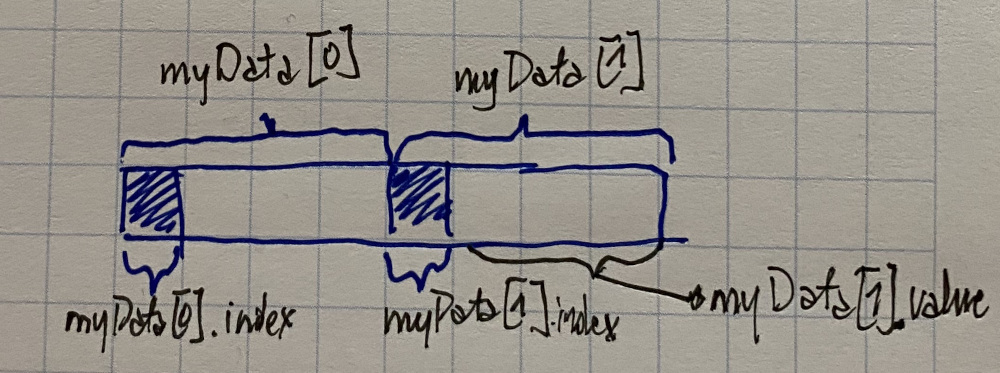 myData[0]
myData[1]
myData[0].index
myData[1].index
myData[1].value